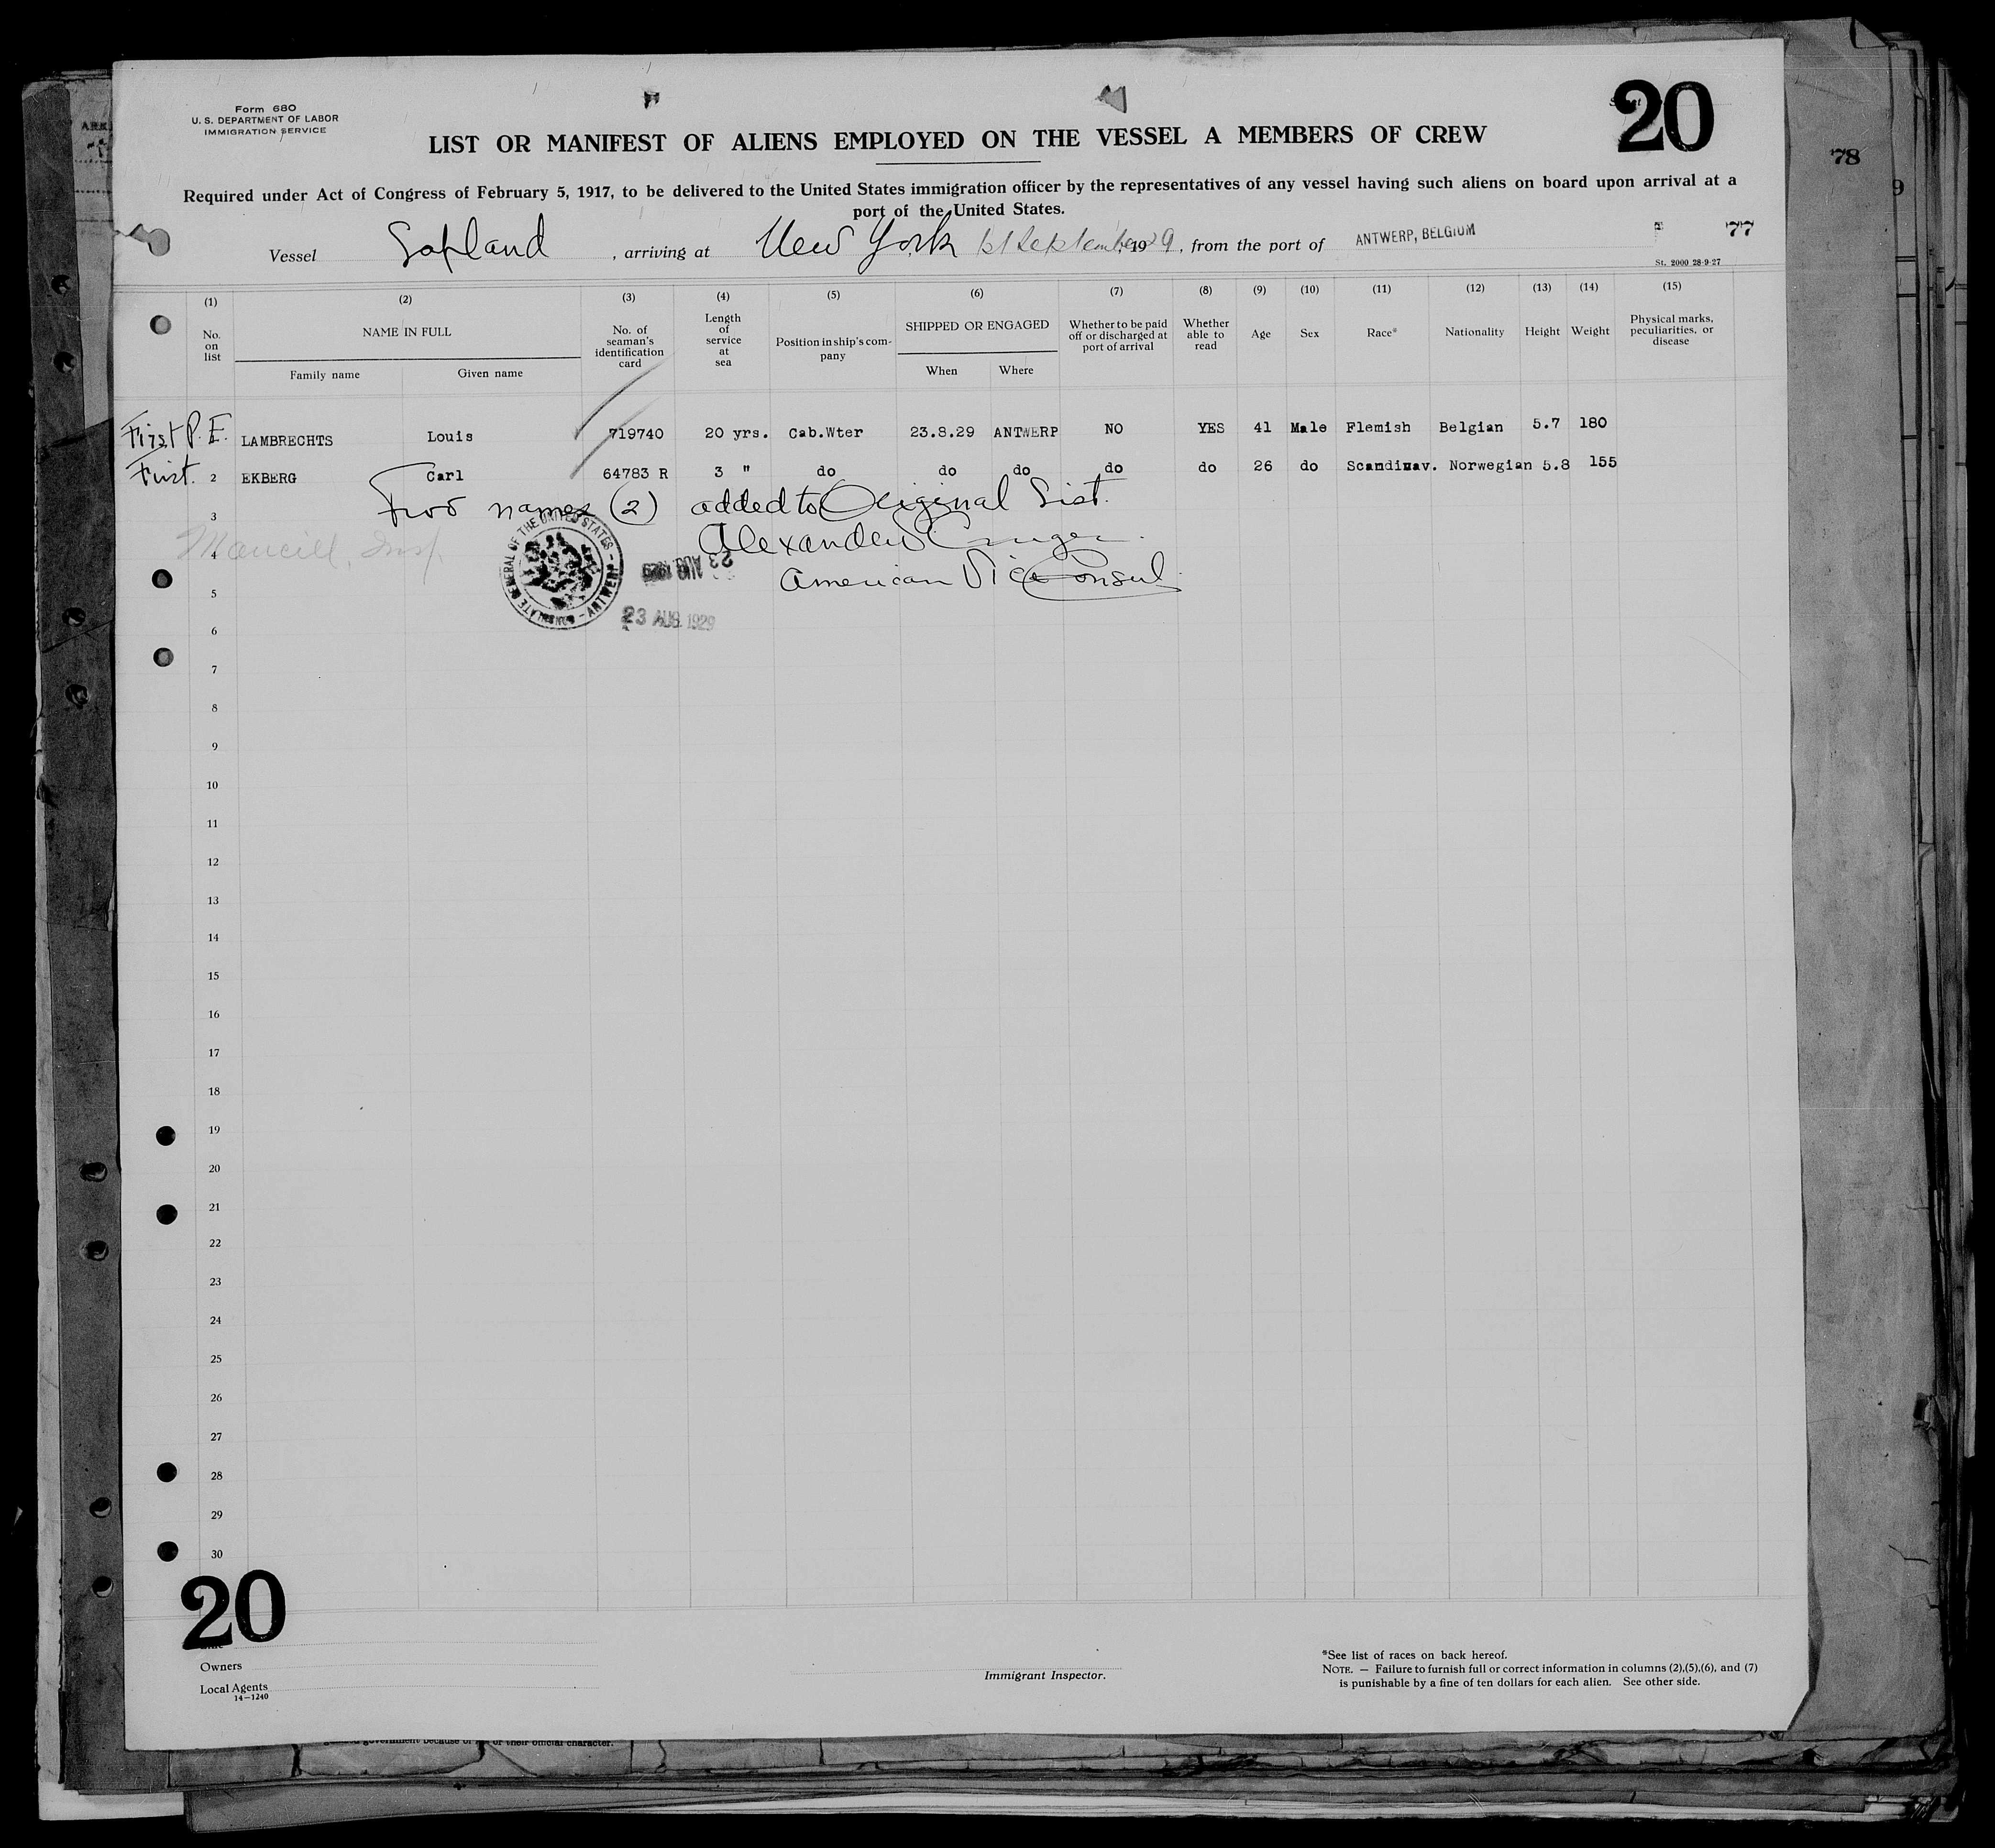 Form 680
U. S. DEPARTMENT OF LABOR
IMMIGRATION SERVICE
20
78
9
LIST OR MANIFEST OF ALIENS EMPLOYED ON THE VESSEL A MEMBERS OF CREW
Required under Act of Congress of February 5, 1917, to be delivered to the United States immigration officer by the representatives of any vessel having such aliens on board upon arrival at a
port of the United States.
77
Vessel Lapland , arriving at New York 1st September 1929, from the port of ANTWERP, BELGIUM
St. 2000 28-9-27
(1) (2) (3) (4) (5) (6) (7) (8) (9) (10) (11) (12) (13) (14) (15)
No. on list NAME IN FULL No. of seaman's identification card Length of service at sea Position in ship's com-pany SHIPPED OR ENGAGED Whether to be paid off or discharged at port of arrival Whether able to read Age Sex Race* Nationality Height Weight Physical marks, peculiarities, or disease
Family name Given name When Where
First P.E. LAMBRECHTS Louis 719740 20 yrs. Cab.Wter 23.8.29 ANTWERP NO YES 41 Male Flemish Belgian 5.7 180
First. 2 EKBERG Carl 64783 R 3 " do do do do do 26 do Scandinav. Norwegian 5.8 155
3 Two names (2) added to Original List.
4 Alexander
American Vice Consul
CONSULATE GENERAL OF THE UNITED STATES - ANTWERP -
23 AUG 1929
23 AUG. 1929
5
6
7
8
9
10
11
12
13
14
15
16
17
18
19
20
21
22
23
24
25
26
27
28
29
30
20
Owners
Local Agents
14-1240
Immigrant Inspector.
*See list of races on back hereof.
NOTE. — Failure to furnish full or correct information in columns (2),(5),(6), and (7)
is punishable by a fine of ten dollars for each alien. See other side.